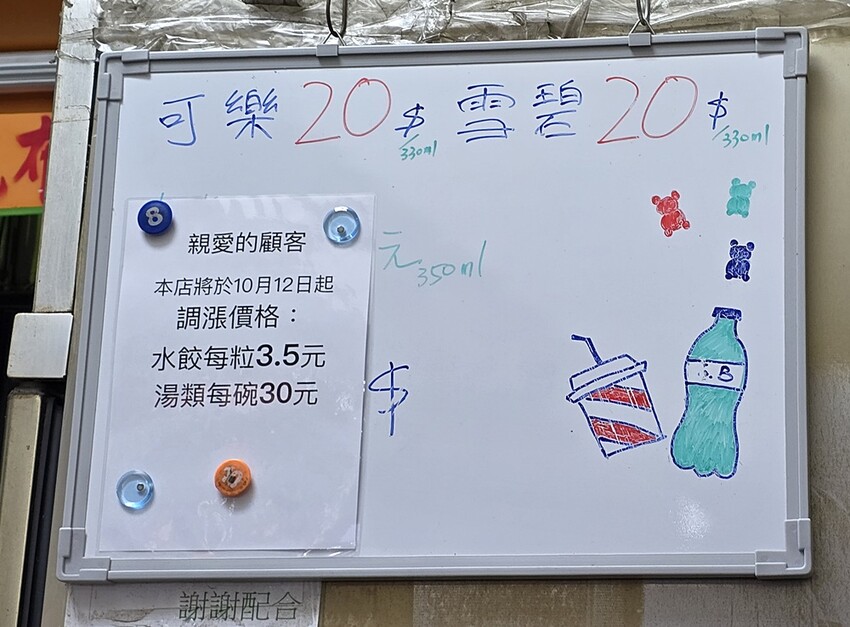 可樂20$/330ml 雪碧20$/330ml
8
親愛的顧客
本店將於10月12日起
調漲價格：
水餃每粒3.5元
湯類每碗30元
元350ml
$
謝謝配合